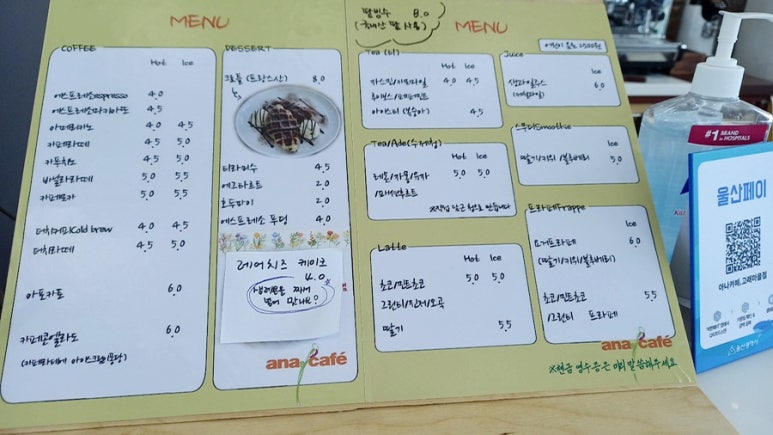 MENU
COFFEE
Hot Ice
에스프레소espresso 4.0
에스프레소마키아또 4.5
아메리카노 4.0 4.5
카페라떼 4.5 5.0
카푸치노 4.5 5.0
바닐라라떼 5.0 5.5
카페모카 5.0 5.5
더치커피Cold brew 4.0 4.5
더치라떼 4.5 5.0
아포카토 6.0
카페콘엘라도 6.0
DESSERT
크로플 (프랑스산) 8.0
티라미수 4.5
에그타르트 2.0
호두파이 2.0
에스프레소 푸딩 4.0
레어치즈 케이크
4.0
생레몬을 짜서
넣어 만나요?
ana café
팥빙수 8.0
(국내산 팥 사용)
MENU
Tea (티)
Hot Ice
자스민/카모마일 4.0 4.5
루이보스/페퍼민트
아이스티 (복숭아) 4.5
Tea/Ade(수제청)
Hot Ice
레몬/자몽/유자 5.0 5.0
/패션후르트
※직접 담근 청으로 만듭니다
Latte
Hot Ice
초코/민트초코 5.0 5.0
그린티/홍차/오곡
딸기 5.5
Juice
Ice
생과일쥬스 6.0
스무디Smoothie
딸기/키위/블루베리 5.0
프라페Frappe
Ice
요거프라페 6.0
(딸기/키위/블루베리)
초코/민트초코 5.5
/그린티 프라페
ana café
※현금 영수증은 미리 말씀해주세요
#1 BRAND in
HOSPITALS
울산페이
아나카페.고래마을점
울산광역시